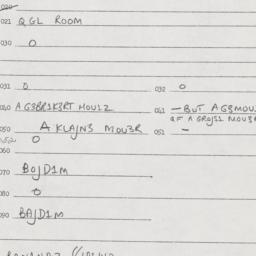 020
021 QGL ROOM
030 0
031 0 032 0
040 AG3BR1K3RT MOUL2 041 —BUT AG3MOU
OF A GROJS1 MOUS
050 A KLAJNS MOU3R 051 —
052 0
060
070 BOJD1M
080 0
090 BAJD1M